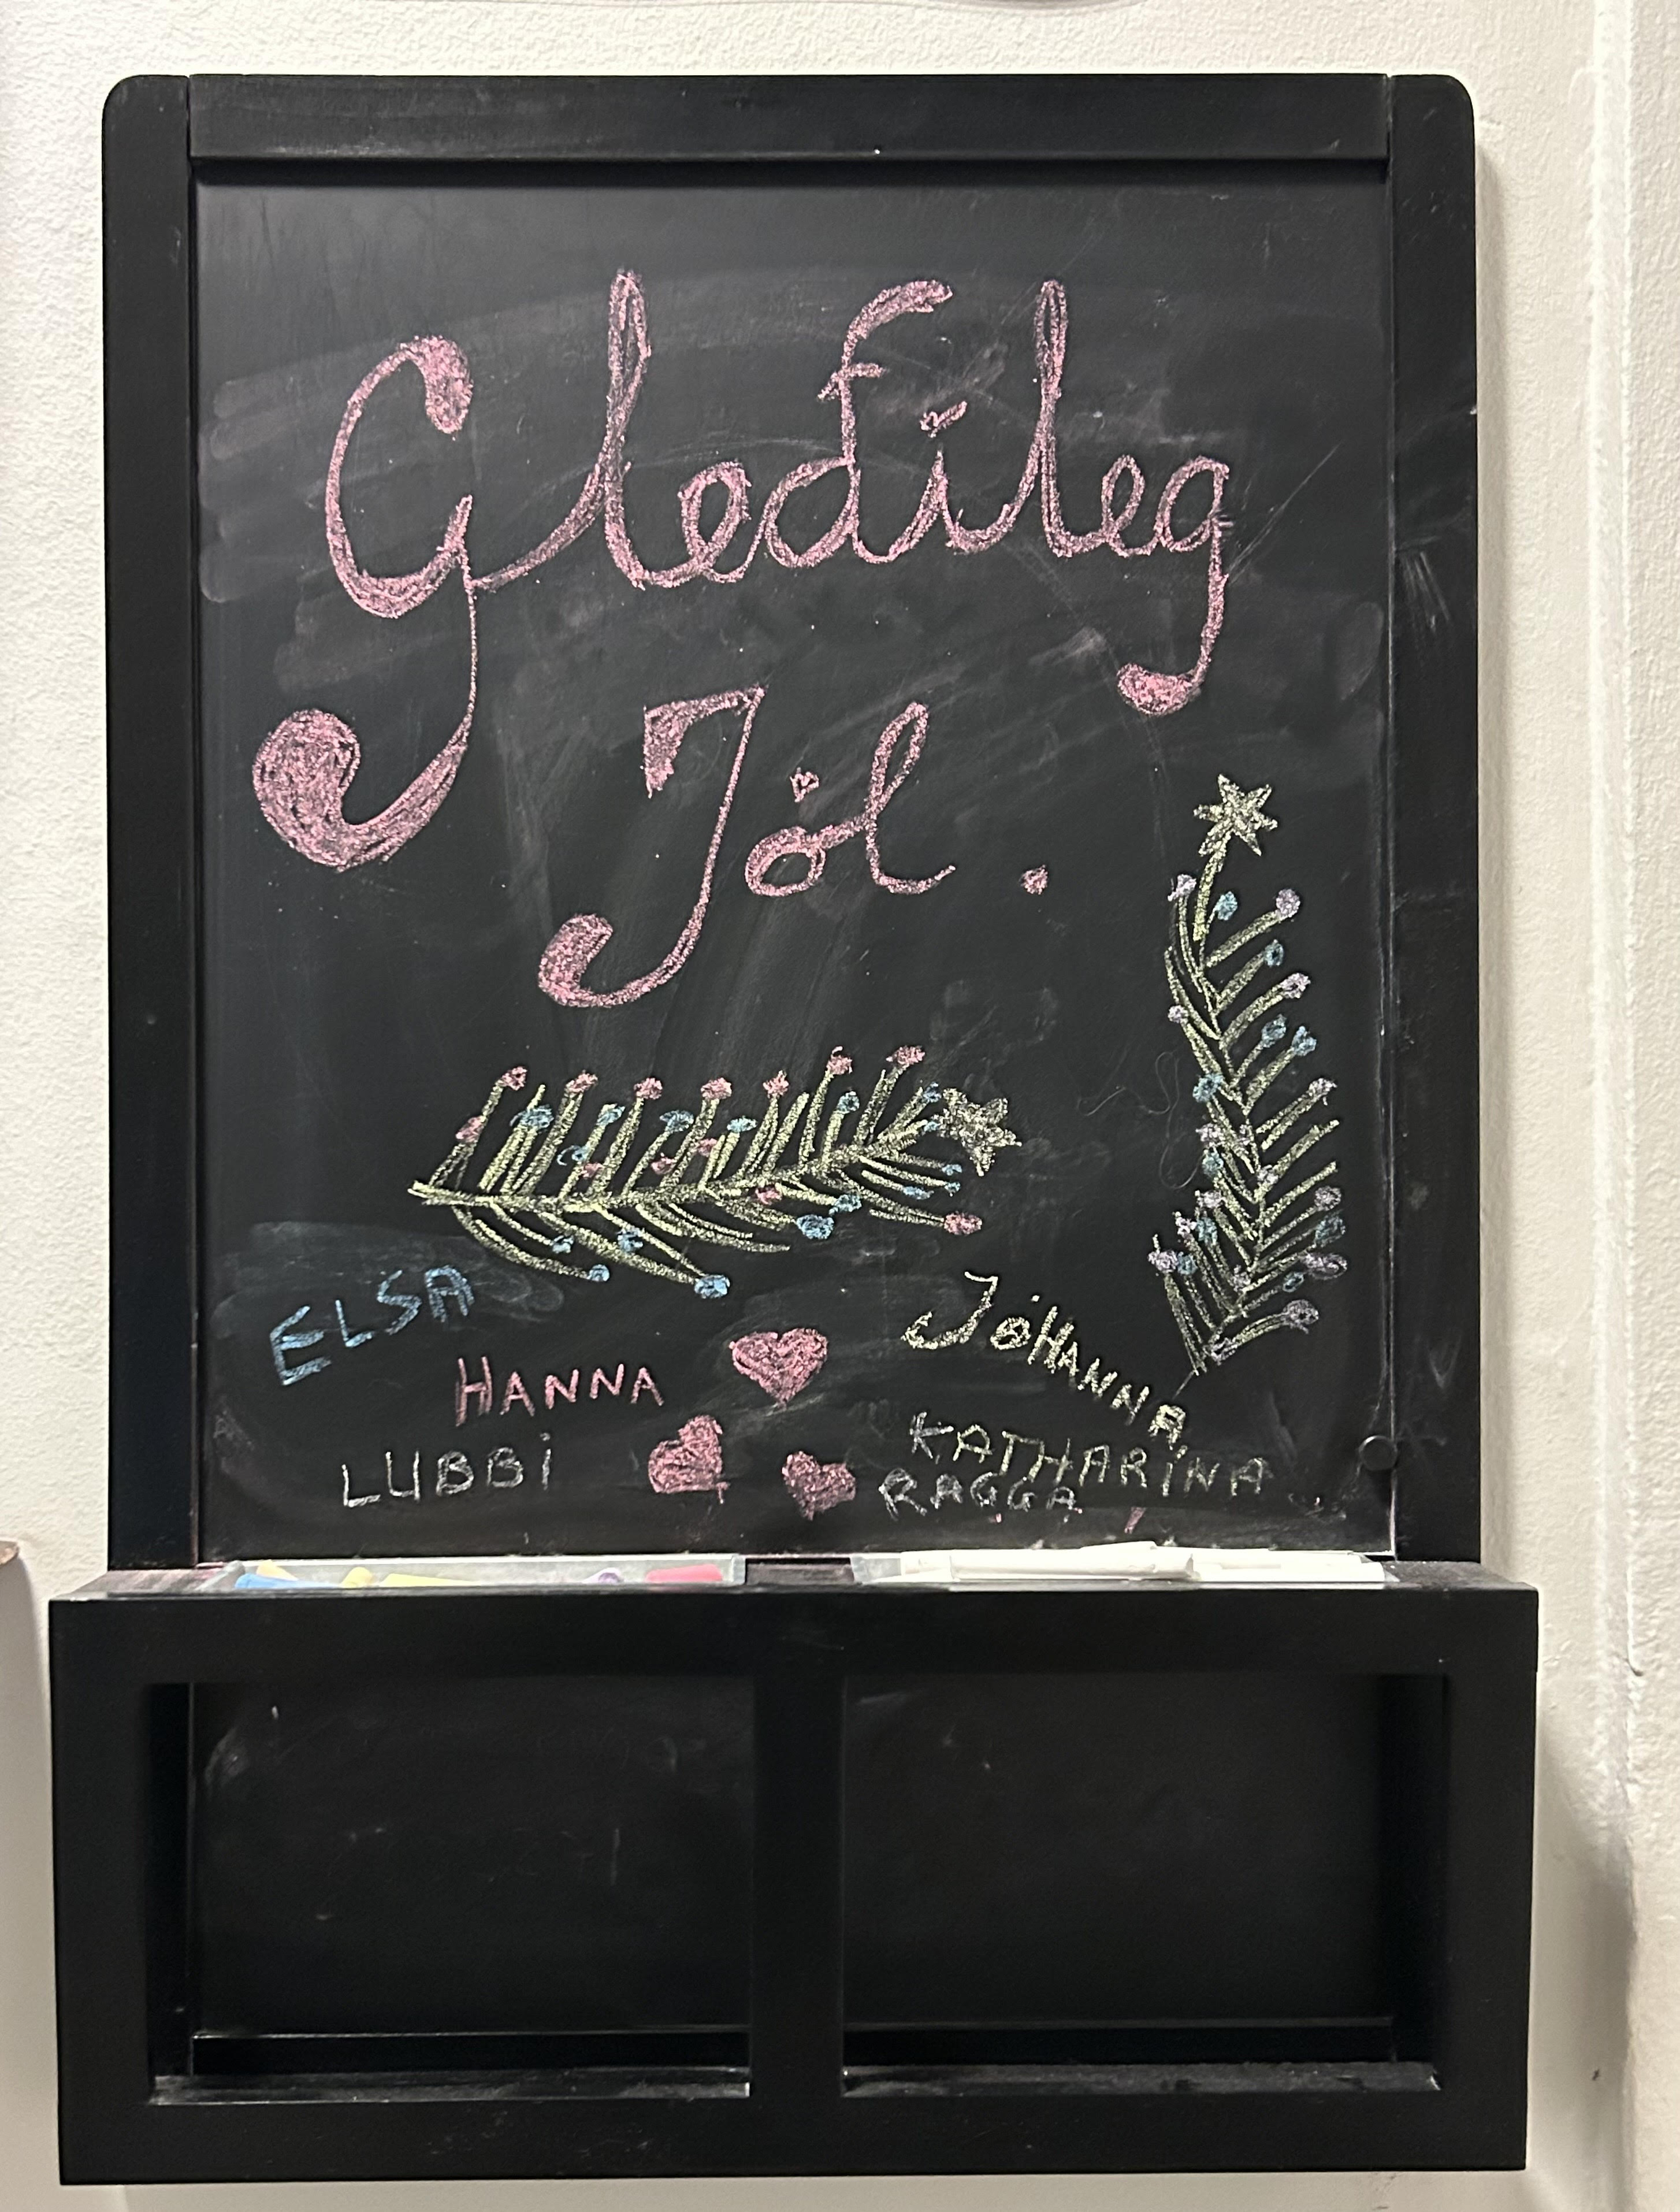 Gleðileg
Jól.
ELSA
HANNA
LUBBI
JÓHANNA
KATHARINA
RAGGA